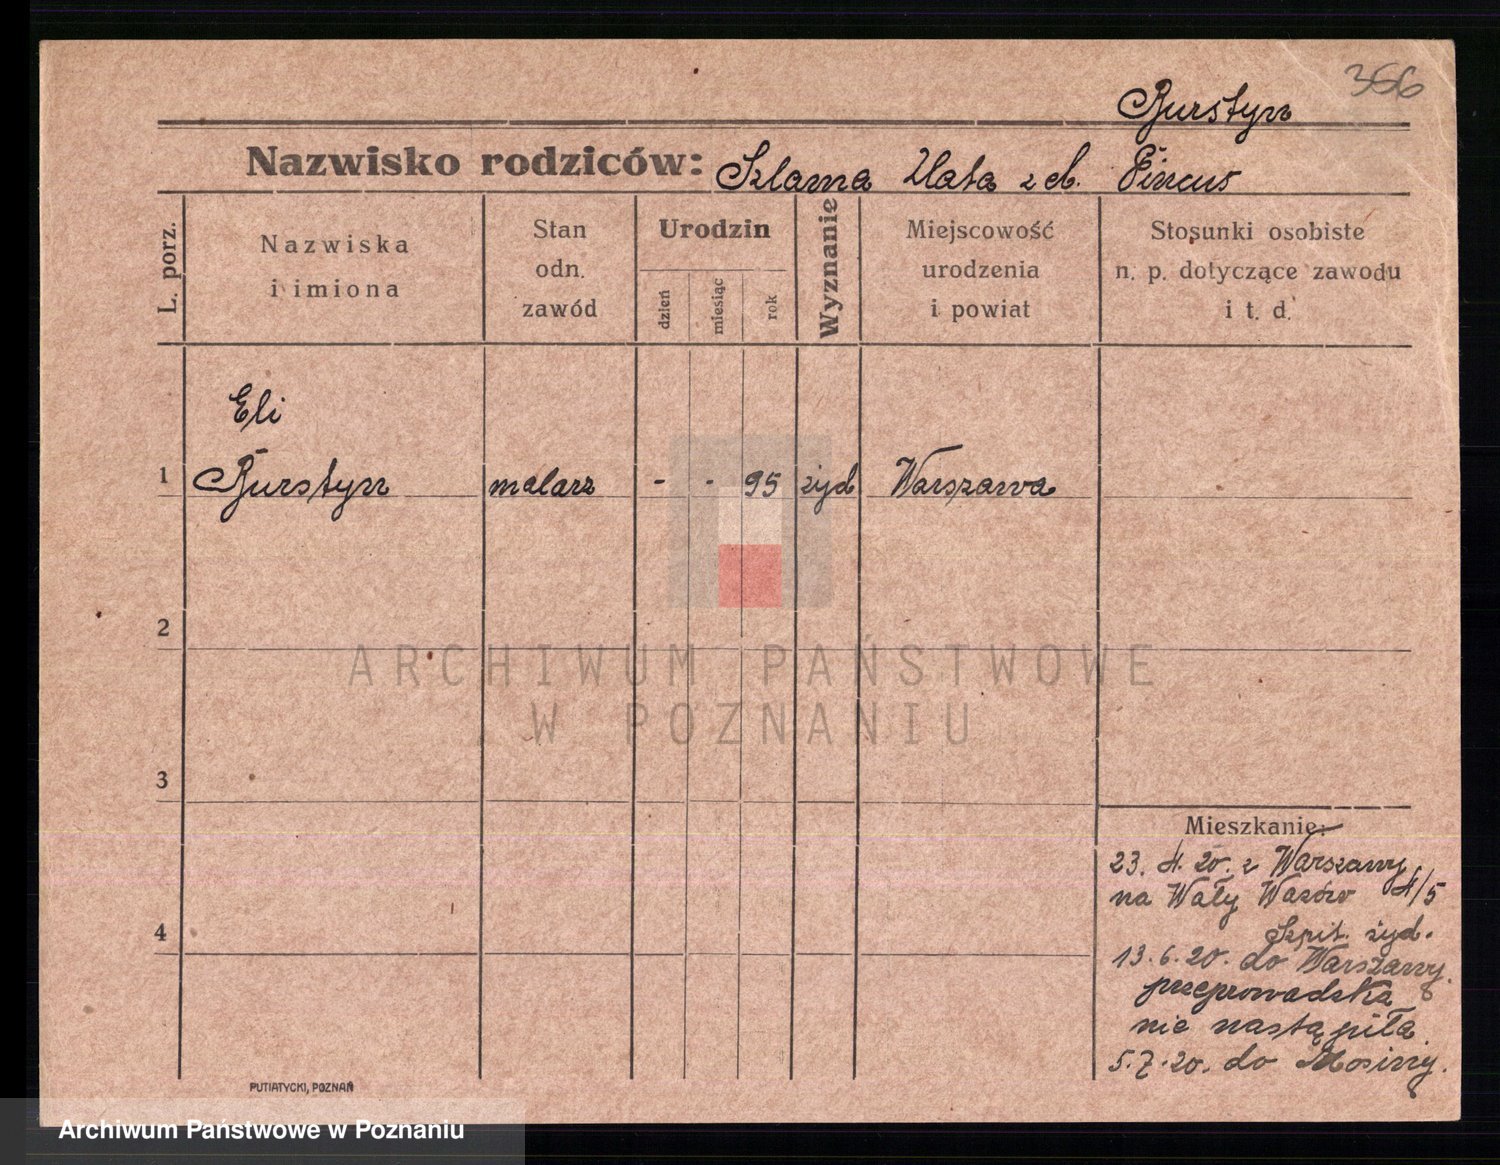 366
Burstyn
Nazwisko rodziców: Szlama Zlata z d. Pincus
L. porz.
Nazwiska
i imiona
Stan
odn.
zawód
Urodzin
dzień
miesiąc
rok
Wyznanie
Miejscowość
urodzenia
i powiat
Stosunki osobiste
n. p. dotyczące zawodu
i t. d.
Eli
1 Burstyn malarz - - 95 żyd Warszawa
2
3
4
Mieszkanie:
23. 4. 20. z Warszawy
na Wały Wazów 4/5
Szpit. żyd.
13. 6. 20. do Warszawy.
przeprowadzka
nie nastąpiła
5. 7. 20. do Mosiny.
PUTIATYCKI, POZNAŃ
ARCHIWUM PAŃSTWOWE
W POZNANIU
Archiwum Państwowe w Poznaniu